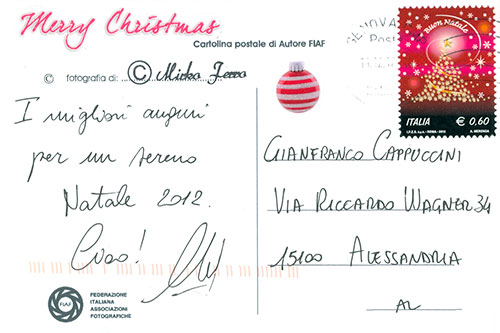 Merry Christmas
Cartolina postale di Autore FIAF
© fotografia di: © Mirko Zorro
I migliori auguri
per un sereno
Natale 2012.
Ciao!
FIAF
FEDERAZIONE
ITALIANA
ASSOCIAZIONI
FOTOGRAFICHE
BUON NATALE
ITALIA € 0,60
GIANFRANCO CAPPUCCINI
VIA RICCARDO WAGNER 34
15100 ALESSANDRIA
AL